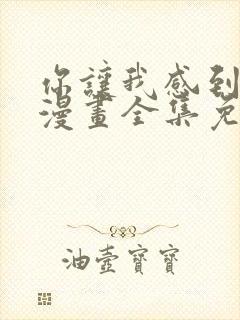 你讓我感到
漫畫全集免
油壺寶寶